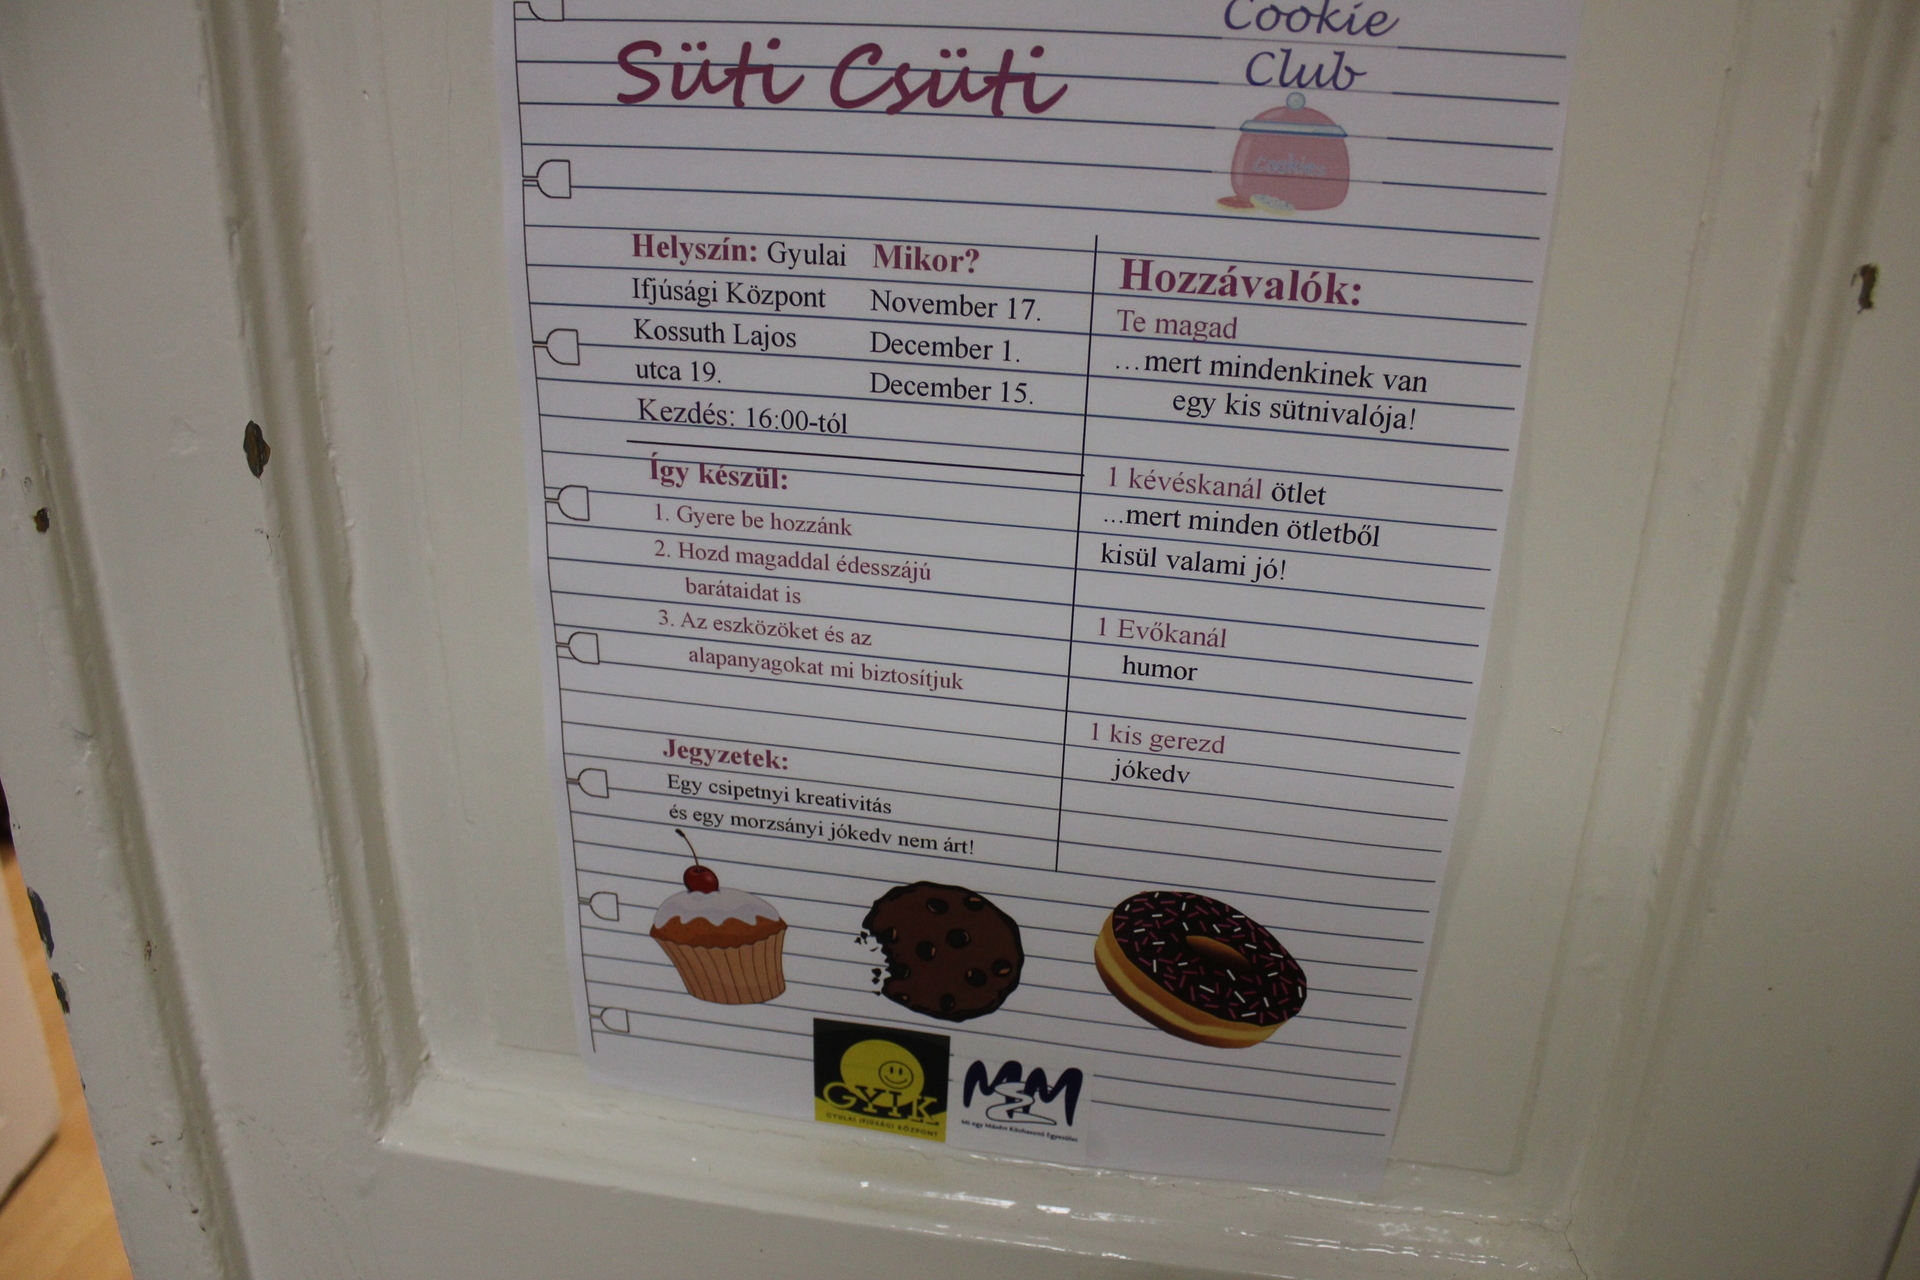 Cookie
Club
Süti Csüti
Cookies
Helyszín: Gyulai
Ifjúsági Központ
Kossuth Lajos
utca 19.
Kezdés: 16:00-tól
Mikor?
November 17.
December 1.
December 15.
Hozzávalók:
Te magad
...mert mindenkinek van
egy kis sütnivalója!
1 kévéskanál ötlet
...mert minden ötletből
kisül valami jó!
1 Evőkanál
humor
1 kis gerezd
jókedv
Így készül:
1. Gyere be hozzánk
2. Hozd magaddal édesszájú
barátaidat is
3. Az eszközöket és az
alapanyagokat mi biztosítjuk
Jegyzetek:
Egy csipetnyi kreativitás
és egy morzsányi jókedv nem árt!
GYIK
GYULAI IFJÚSÁGI KÖZPONT
MM
Mi egy Másért Közhasznú Egyesület